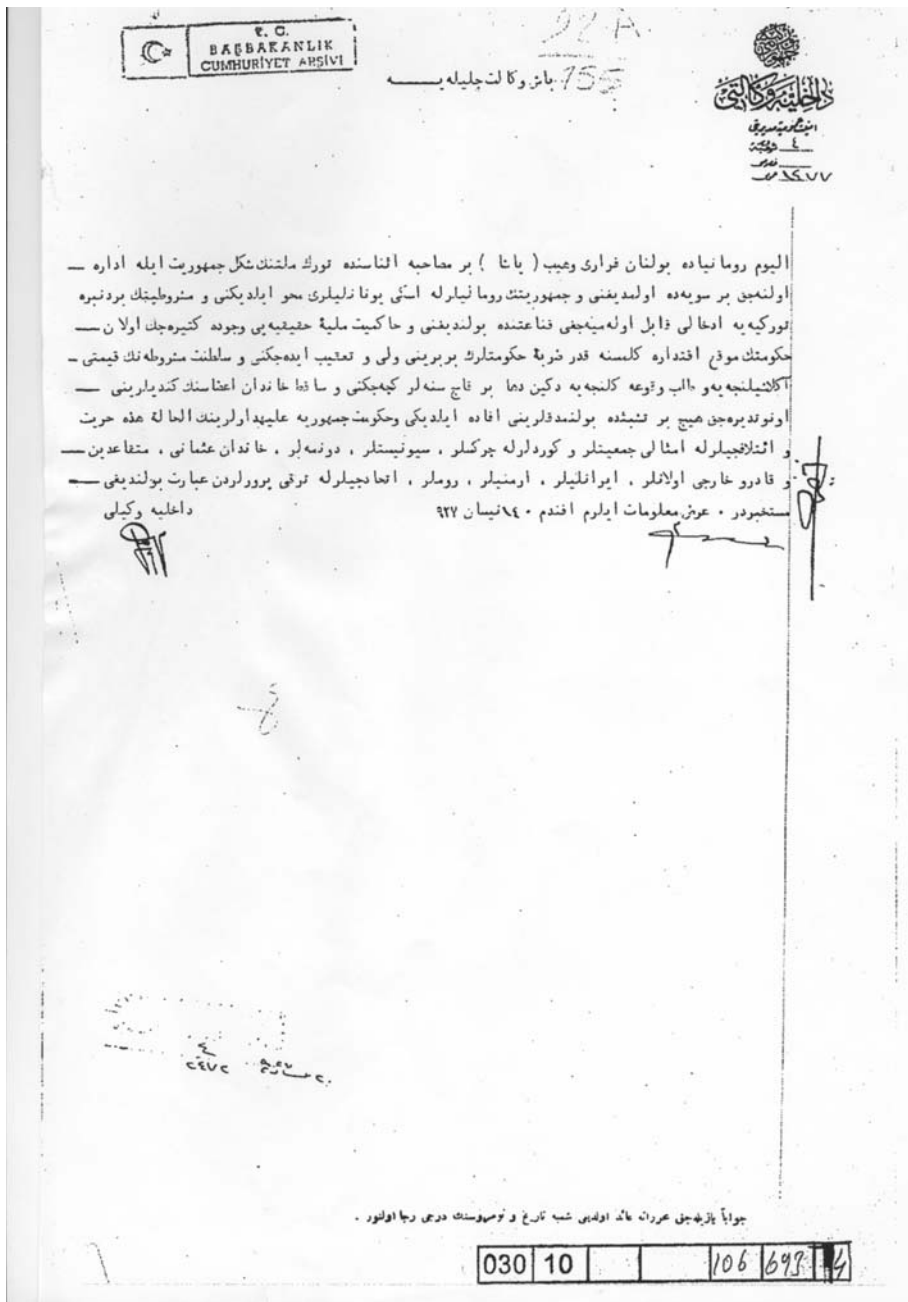 T. C.
BAŞBAKANLIK
CUMHURİYET ARŞİVİ
22 A
155
باش وكالت جليله يه
داخليه وكالتى
امنيت عموميه مديريتى
٤
١٤٧٧
اليوم رومانياده بولنان فرارى وهيب ( پاشا ) بر مصاحبه اثناسنده تورك ملتنك شكل جمهوريت ايله اداره
اولنه‌جق بر سويه‌ده اولمديغنى و جمهوريتك رومانيارله اسكى يونانليلرى محو ايلديكنى و مشروطيتك بردنبره
توركيه يه ادخالى قابل اوله‌ميه‌جغى قناعتنده بولنديغنى و حاكميت مليهٔ حقيقيه‌يى وجوده كتيره‌جك اولان
حكومتك موقع اقتداره كلمسنه قدر ضربهٔ حكومتلرك بربرينى ولى و تعقيب ايده‌جكنى و سلطنت مشروطه‌نك قيمتى
آكلاشيلنجه‌يه و طلب وقوعه كلنجه‌يه دكين دها بر قاچ سنه‌لر كچه‌جكنى و ساقط خاندان اعضاسنك كنديلرينى
اونوتديره‌جق هيچ بر تشبثده بولنمدقلرينى افاده ايلديكى وحكومت جمهوريه عليهدارلرينك الحالة هذه حريت
و ائتلافجيلرله امثالى جمعيتلر و كوردلرله چركسلر ، سيونيستلر ، دونمه‌لر ، خاندان عثمانى ، متقاعدين
و قادرو خارجى اولانلر ، ايرانليلر ، ارمنيلر ، روملر ، اتحادجيلرله ترقى پرورلردن عبارت بولنديغى
مستخبردر ٠ عرض معلومات ايلرم افندم ٠ ١٤ نيسان ٩٢٧
داخليه وكيلى
٤
٢٤٧٢
جواباً يازيله‌جق محرراته عائد اولديغى شعبه تاريخ و نومروسنك درجى رجا اولنور .
030 10 106 693 4